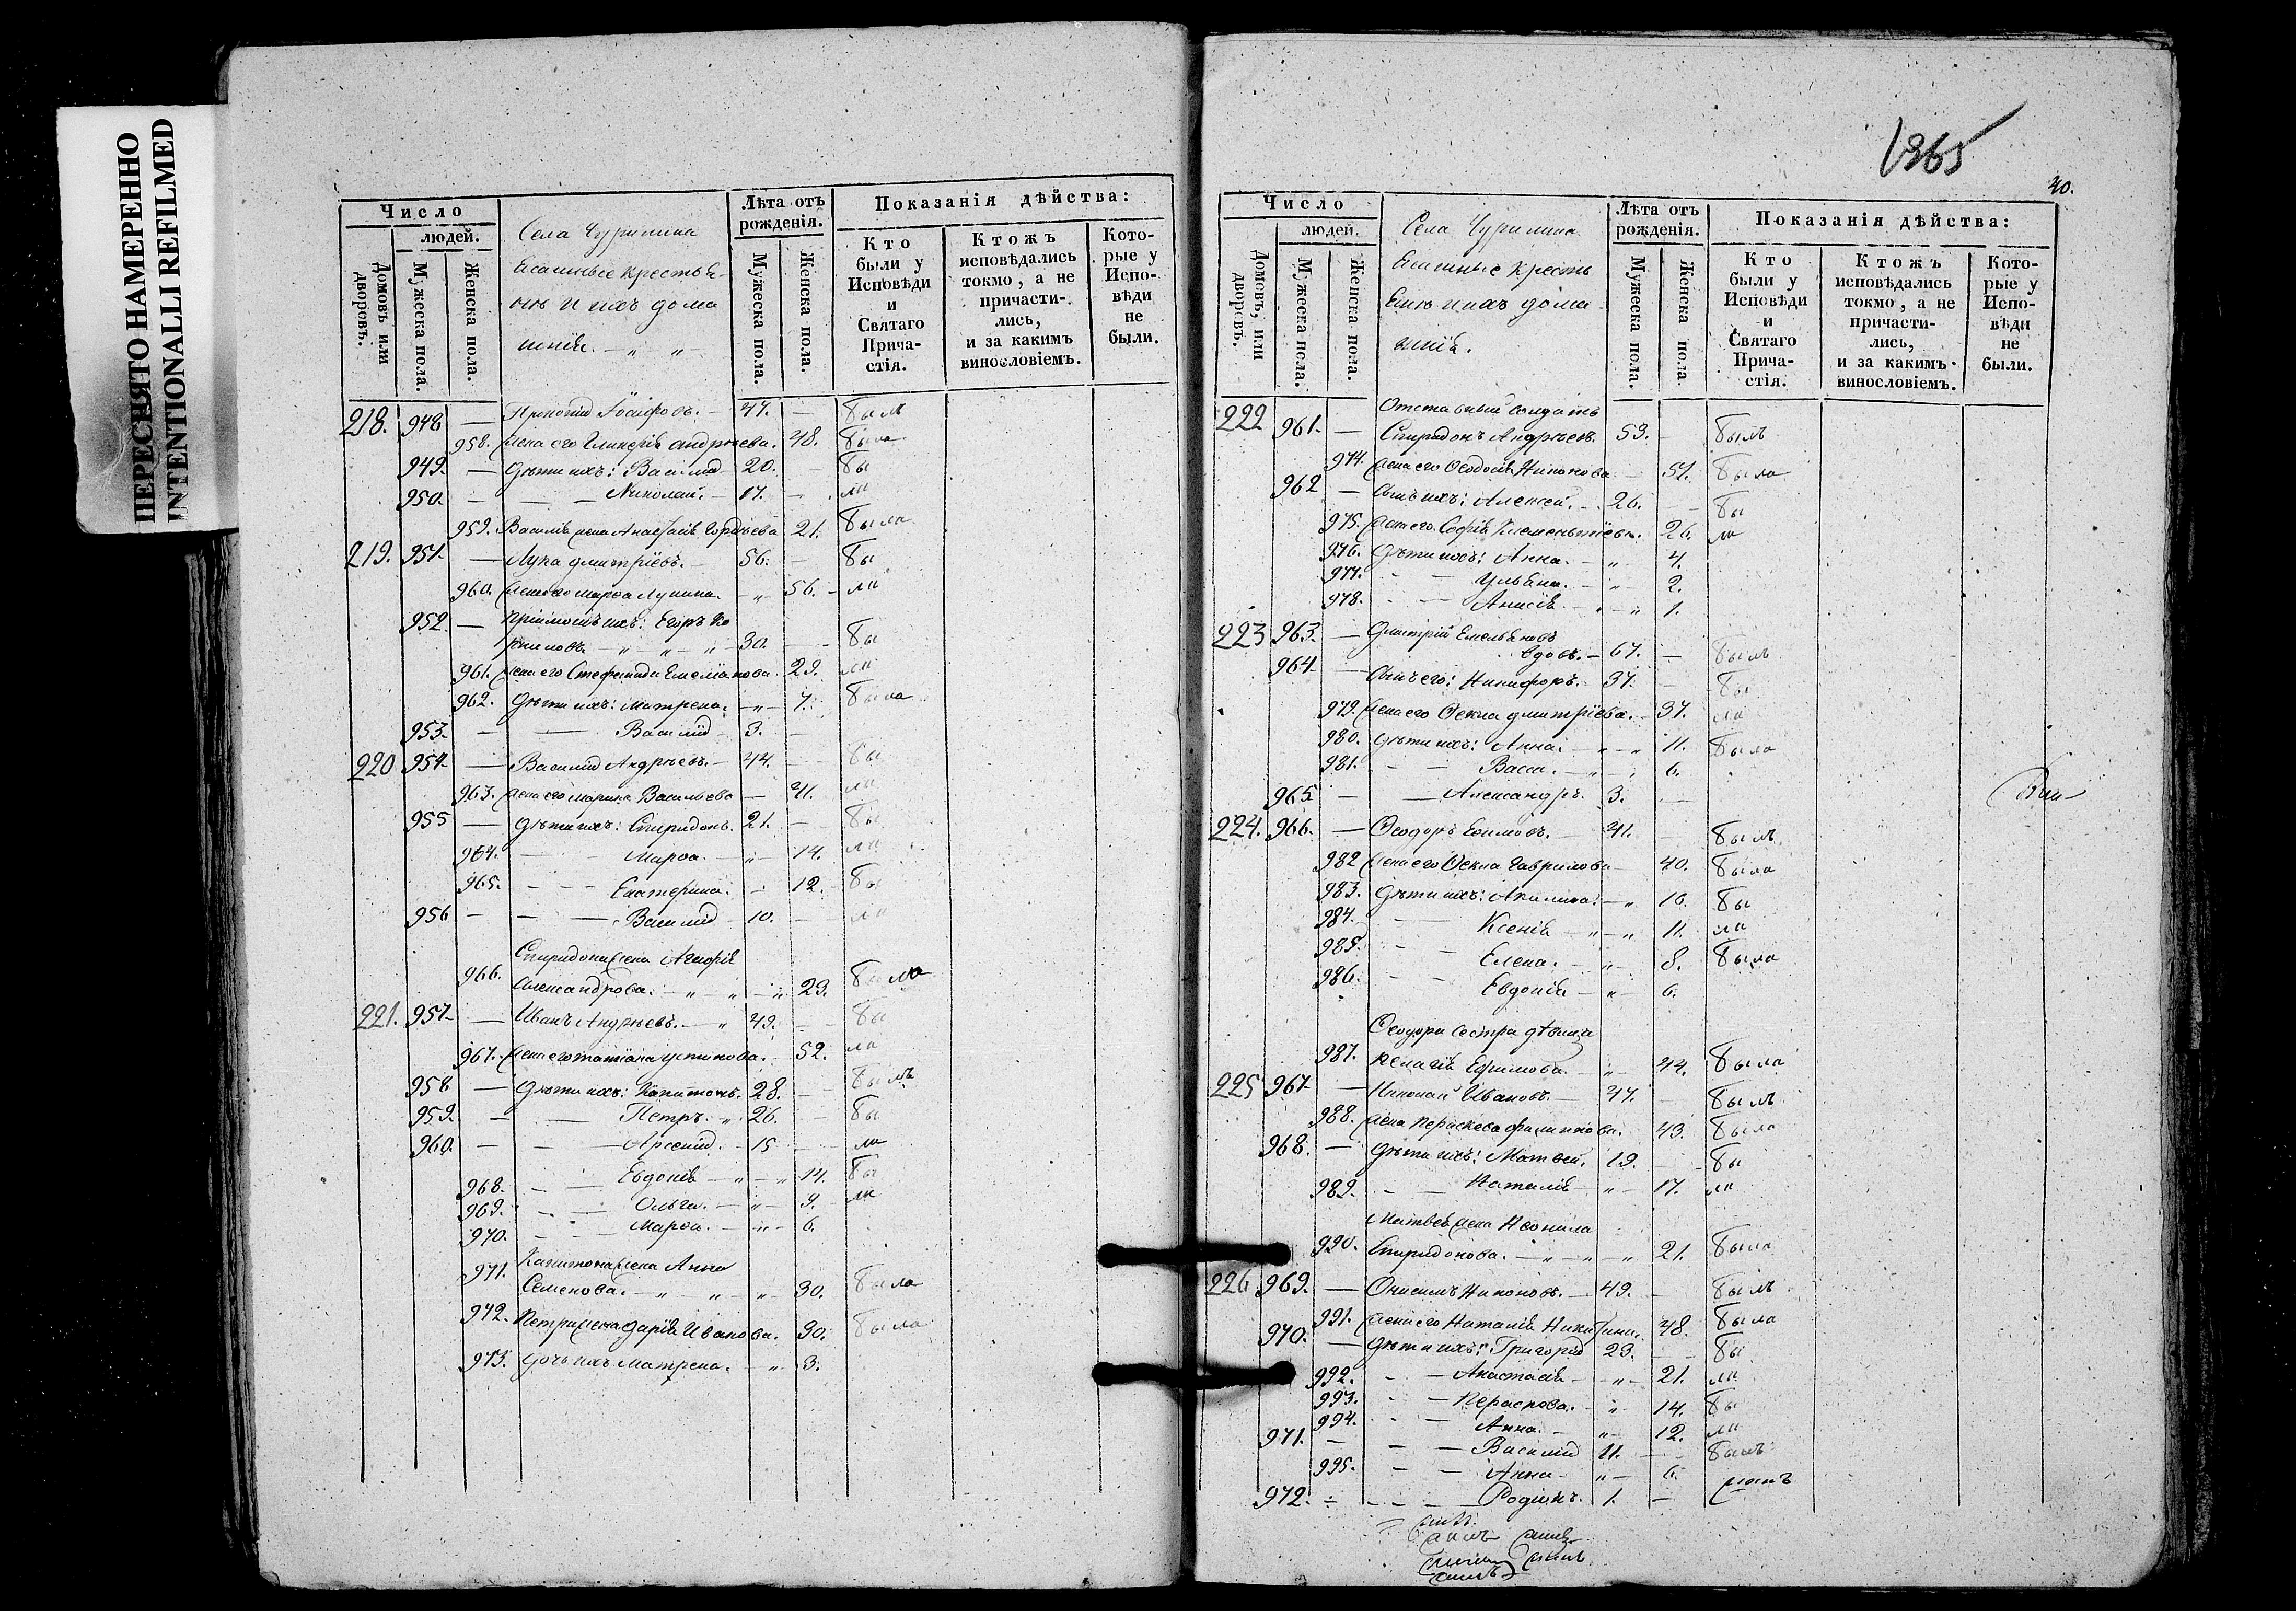 ПЕРЕСНЯТО НАМЕРЕННО
INTENTIONALLI REFILMED
Число
людей.
Домовъ или дворовъ.
Мужеска пола.
Женска пола.
Села Чурилина
Ясашные крестья-
нѣ и ихъ дома
шнія. — „ — „ —
Лѣта отъ рожденія.
Мужеска пола.
Женска пола.
Показанія дѣйства:
Кто были у Исповѣди и Святаго Прича-стія.
Ктожъ исповѣдались токмо, а не причасти-лись, и за какимъ винословіемъ.
Кото-рые у Испо-вѣди не были.
218. 948 — Іосифовъ. — 47. — былъ
958. жена его Гликерія Андреева. 48. была
949. — Дѣти ихъ: Василій 20. — бы
950. — — — Николай. — 17. — ли
959. Василія жена Анастасія Гордѣева 21. была
219. 951. — Лука Дмитріевъ. — 56. — бы
960. жена его Марѳа Лукина. — „ — 56. — ли
952. — Пріимошъ ихъ: Егоръ Ко
рниловъ. — „ — „ — „ — 30. — — бы
961. жена его Стефанида Емеліанова. 29. ли
962. Дѣти ихъ: Матрена. — „ — 7. была
953. — — Василій 3. —
220 954. — Василій Андреевъ. — 44. — бы
963. жена его Марина Васильева — 41. ли
955 — Дѣти ихъ: Спиридонъ. 21. — бы
964. — — Марѳа. — „ — 14. ли
965. — — — Екатерина. — 12. бы
956 — — — Василій 10. — ли
Спиридона жена
966. Александрова. — „ — „ — „ 23. была
221. 957. — Иванъ Андреевъ. — „ 49. — бы
967. жена его Татіана Устинова. — 52. ли
958 — Дѣти ихъ: Капитонъ. 28. — былъ
959. — — Петръ. „ 26. — бы
960. — — — Арсеній. — 15 — ли
968. — — Евдокія — „ — „ 14. бы
969. — — Ольга. — „ — 9. ли
970. — — Марѳа. — „ — 6.
971. Капитона жена Анна
Семенова. — „ — „ — „ — 30. была
972. Петра жена Дарія Иванова. 30. была
973. Дочь ихъ Матрена. — „ — 3.
1865
40.
Число
людей.
Домовъ, или дворовъ.
Мужеска пола.
Женска пола.
Села Чурилина
Ясашные кресть
янѣ и ихъ дома
шнія.
Лѣта отъ рожденія.
Мужеска пола.
Женска пола.
Показанія дѣйства:
Кто были у Исповѣди и Святаго Прича-стія.
Ктожъ исповѣдались токмо, а не причасти-лись, и за какимъ винословіемъ.
Кото-рые у Испо-вѣди не были.
222 Отставный солдатъ
961. — Спиридонъ Андреевъ. 53. — былъ
974. жена его Ѳеодосія Никонова — 57. была
962 — Сынъ ихъ: Алексей. — 26. — бы
975. жена его Софія Клементіева. 26. ли
976. Дѣти ихъ: Анна. — „ — 4.
977. — — Ульяна. — „ — 2.
978. — — Анисія. — „ — „ 1.
223 963. — Дмитрій Емельяновъ
вдовъ. — 67. — былъ
964. — Сынъ его: Никифоръ. — 37. — бы
979. жена его Ѳекла Дмитріева. — 37. ли
980. Дѣти ихъ: Анна. — „ — „ 11. была
981. — — Васса. — „ — 6.
965 — — Александръ. 3. —
224. 966. — Ѳеодоръ Ефимовъ. — 41. былъ
982 жена его Ѳекла Гаврилова — 40. была
983. Дѣти ихъ: Акилина. — „ 16. бы
984. — Ксенія — „ — „ 11. ли
985. — — Елена. — „ — 8. была
986. — — Евдокія — „ — 6.
Ѳеодора сестра дѣвица
987. Пелагія Ефимова. — „ — 44. была
225 967. — Николай Ивановъ. — 47. — былъ
988. жена Параскева Филиппова. 43. была
968. — Дѣти ихъ: Матвей. 19. — бы
989. — — Наталія — „ — 17. ли
Матвея жена Неонила
990. Спиридонова. — „ — „ — „ 21. была
226 969. — Онисимъ Никоновъ. — 49. — былъ
991. жена его Наталія Никитина. 48. была
970. — Дѣти ихъ: Григорій 23. — бы
992. — — Анастасія — „ — 21. ли
993. — — Пераскова. — „ — 14. бы
994. — — Анна. — „ — 12. ли
971. — — — Василій 11. — былъ
995. — — Анна — „ — 6.
972. — — — Родіонъ. 1. —